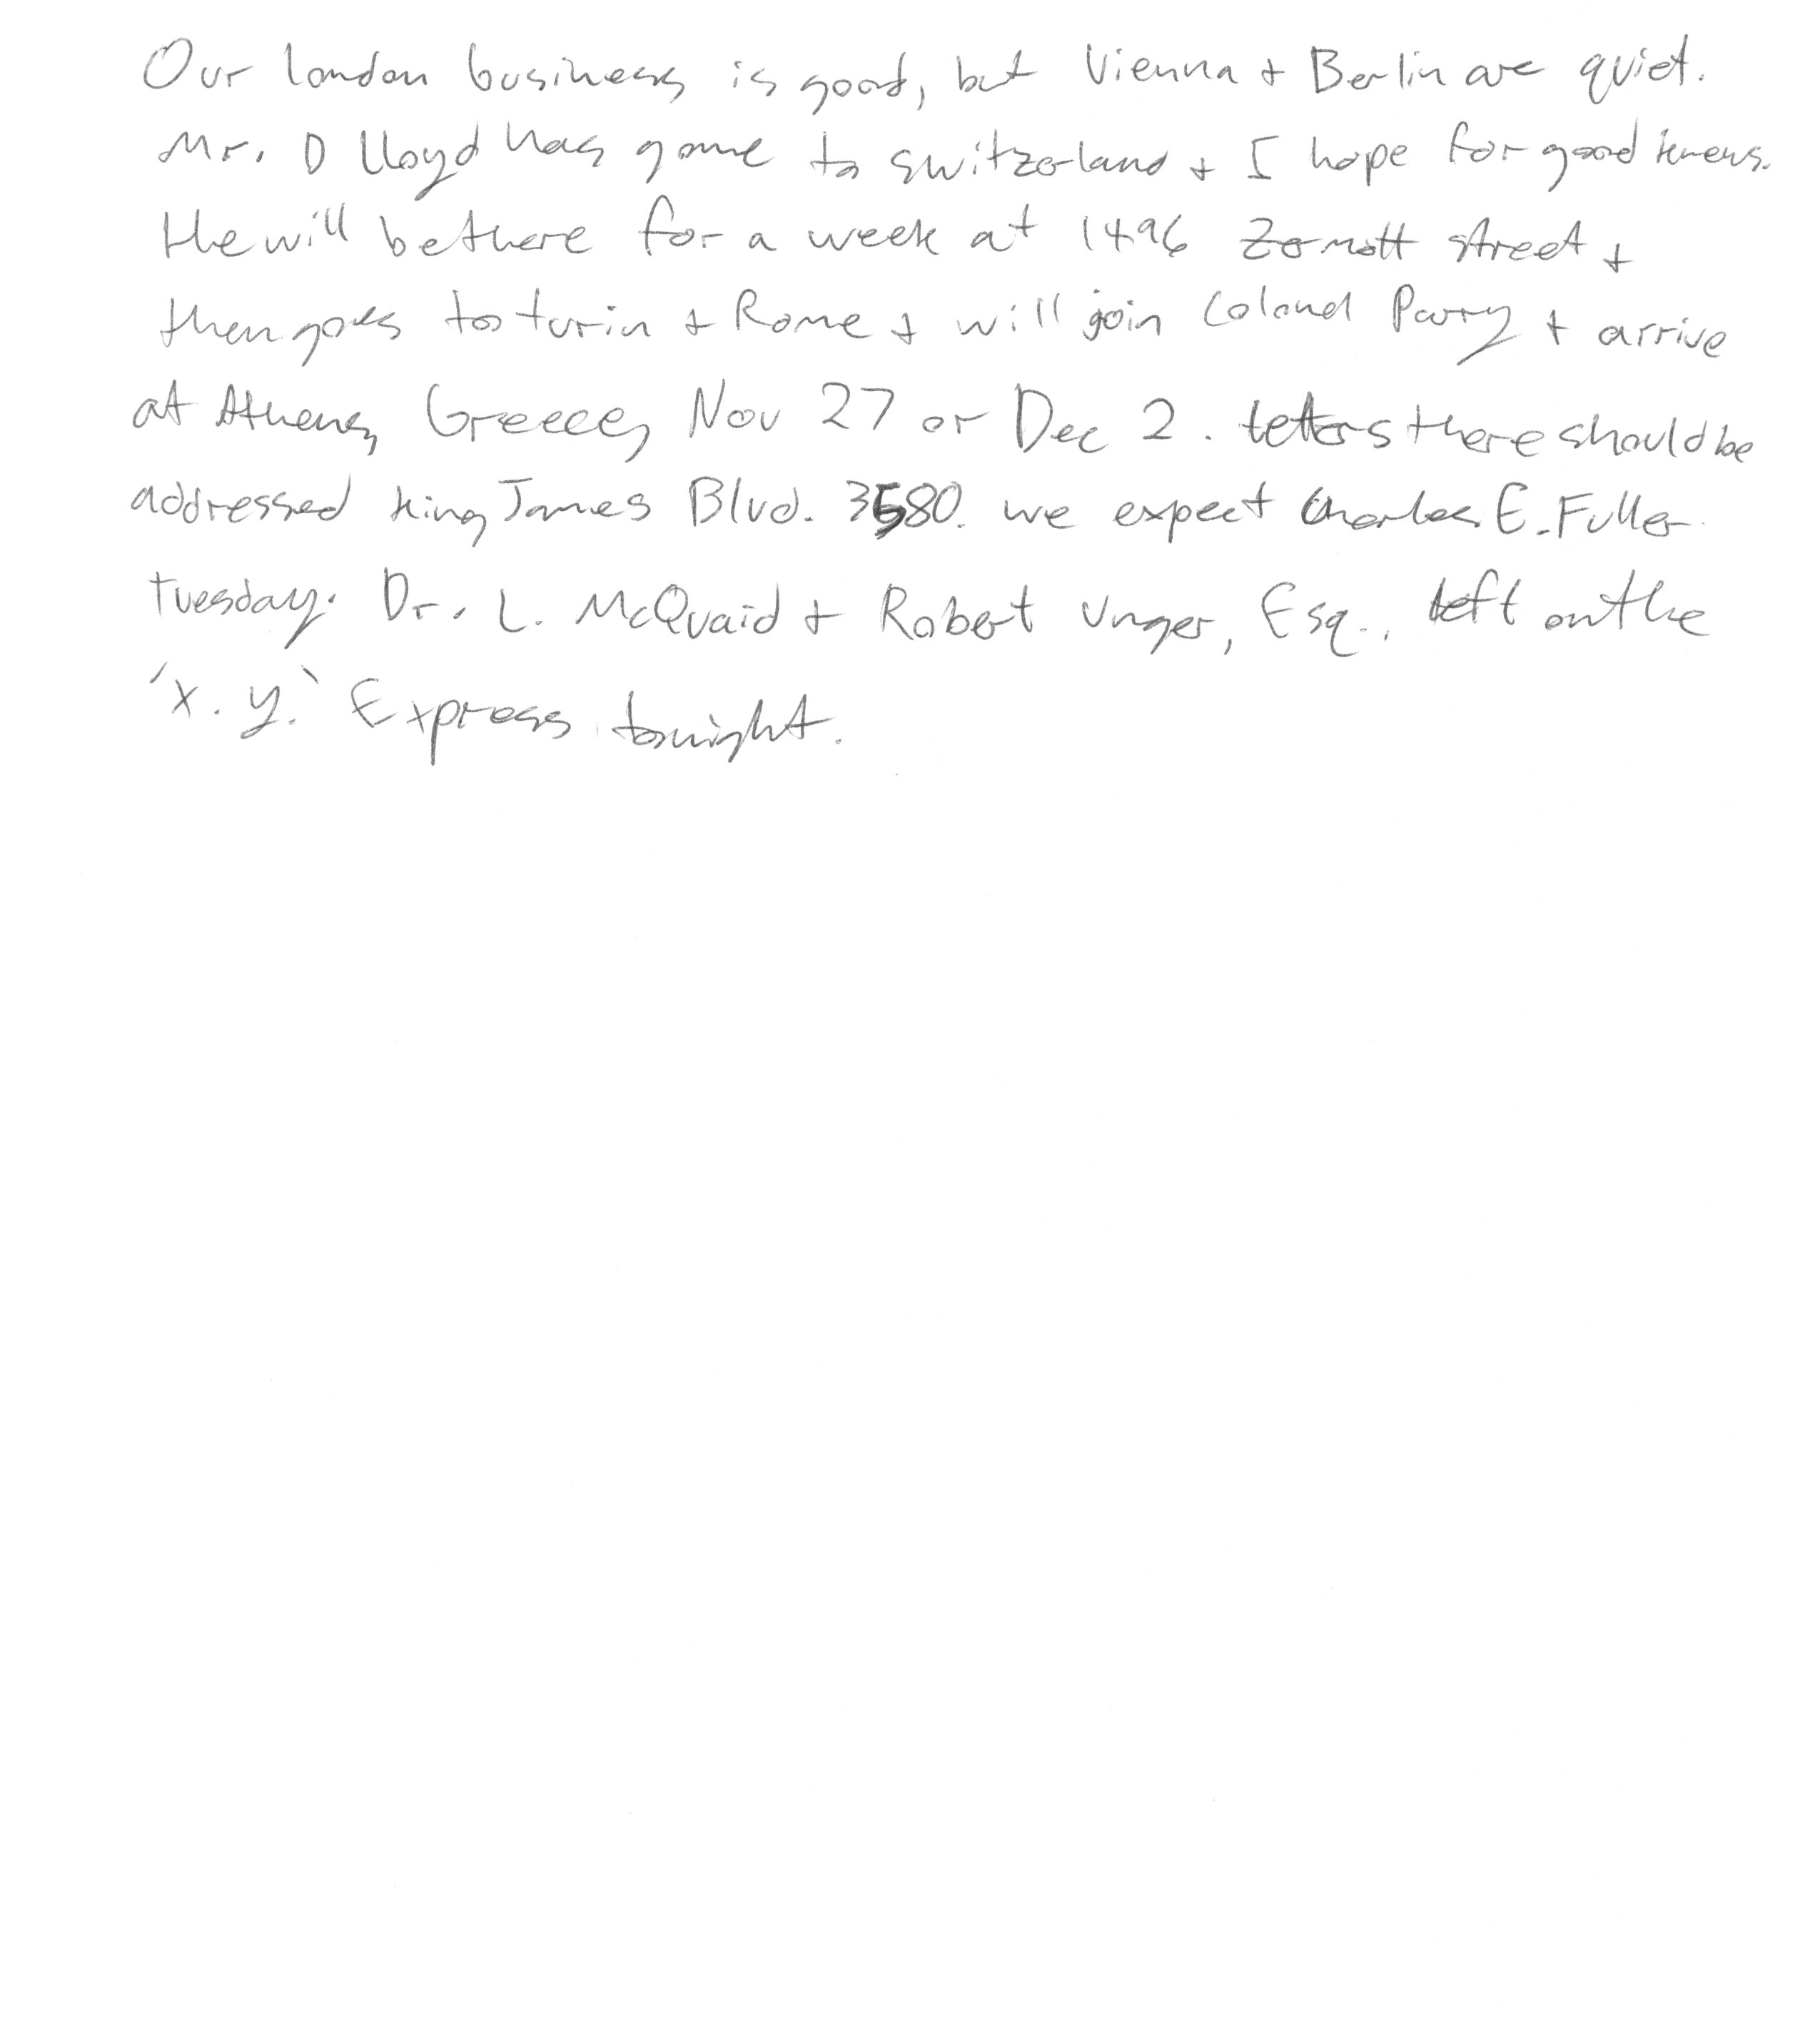 Our london business is good, but Vienna + Berlin are quiet.
Mr. D Lloyd has gone to switzerland + I hope for good news.
He will be there for a week at 1496 Zermott street +
then goes to turin + Rome + will join Colonel Parry + arrive
at Athens, Greece, Nov 27 or Dec 2. letters there should be
addressed king James Blvd. 3580. we expect Charles E. Fuller
tuesday. Dr. L. McQuaid + Robert Unger, Esq., left on the
'X. Y.' Express tonight.